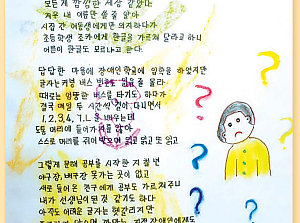 모든게 깜깜한 세상 같았다
겨우 내 이름만 쓸 줄 알아
시집 간 여동생에게만 의지하다가
초등학생 조카에게 한글을 가르쳐 달라고 하니
어른이 한글도 모르냐고 한다.
답답한 마음에 장애인학교에 입학을 하였지만
글자는커녕 버스 번호도 읽을 줄 몰라
때로는 엉뚱한 버스를 타기도 하다가
결국 매일 두 시간씩 걸어 다니면서
1, 2, 3, 4, ㄱ, ㄴ을 배우는데
도통 머리에 들어가지를 않아
스스로 머리를 쥐어 박으며 읽고 읽고 또 읽고
그렇게 문해 공부를 시작한 지 몇 년
야구장, 배구장 못가는 곳이 없고
새로 들어온 친구에게 공부도 가르쳐주니
내가 선생님이 된 것 같기도 하다
아직도 어려운 글자는 헷갈리지만